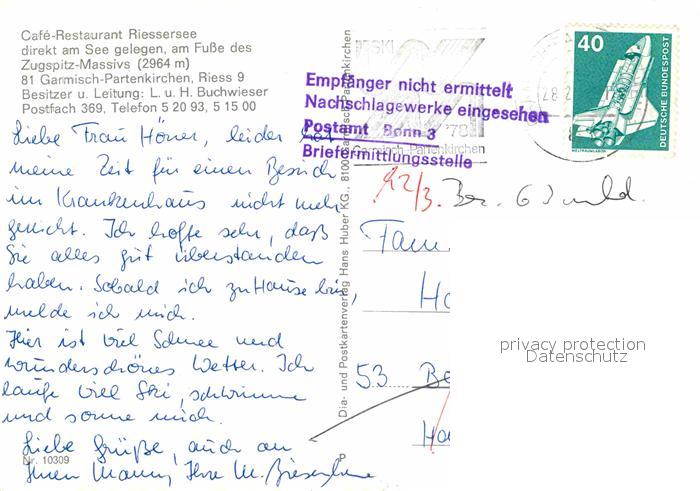 Café-Restaurant Riessersee
direkt am See gelegen, am Fuße des
Zugspitz-Massivs (2964 m)
81 Garmisch-Partenkirchen, Riess 9
Besitzer u. Leitung: L. u. H. Buchwieser
Postfach 369, Telefon 5 20 93, 5 15 00
Liebe Frau Höner, leider hat
meine Zeit für einen Besuch
im Krankenhaus nicht mehr
gereicht. Ich hoffe sehr, daß
Sie alles gut überstanden
haben. Sobald ich zu Hause bin,
melde ich mich.
Hier ist viel Schnee und
wunderschönes Wetter. Ich
laufe viel Ski, schwimme
und sonne mich.
Liebe Grüße, auch an
Ihren Mann, Ihre M.
Nr. 10309
Dia- und Postkartenverlag Hans Huber KG., 8100 Garmisch-Partenkirchen
SKI
78
Garmisch-Partenkirchen
Empfänger nicht ermittelt
Nachschlagewerke eingesehen
Postamt Bonn 3
Briefermittlungsstelle
40
DEUTSCHE BUNDESPOST
WELTRAUMLABOR
12/3.
Fam
Ho
53 Bo
Ha
privacy protection
Datenschutz